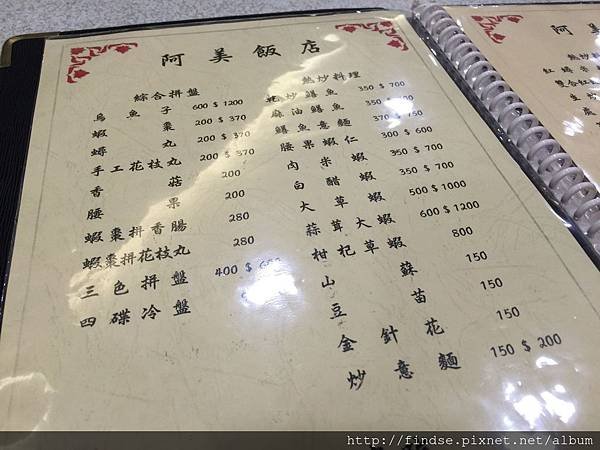 阿美飯店
綜合拼盤
烏魚子 600 $ 1200
蝦棗 200 $ 370
蟳丸 200 $ 370
手工花枝丸 200 $ 370
香菇 200
腰果 200
蝦棗拼香腸 280
蝦棗拼花枝丸 280
三色拼盤 400 $
四碟冷盤
熱炒料理
炒鱔魚 350 $ 700
麻油鱔魚 350 $ 700
鱔魚意麵
腰果蝦仁 300 $ 600
肉米蝦 350 $ 700
白醋蝦 350 $ 700
大草蝦 500 $ 1000
蒜茸大蝦 600 $ 1200
柑杞草蝦 800
山蘇 150
豆苗 150
金針花 150
炒意麵 150 $ 200
阿美
熱炒
紅蟳
http://findse.pixnet.net/album